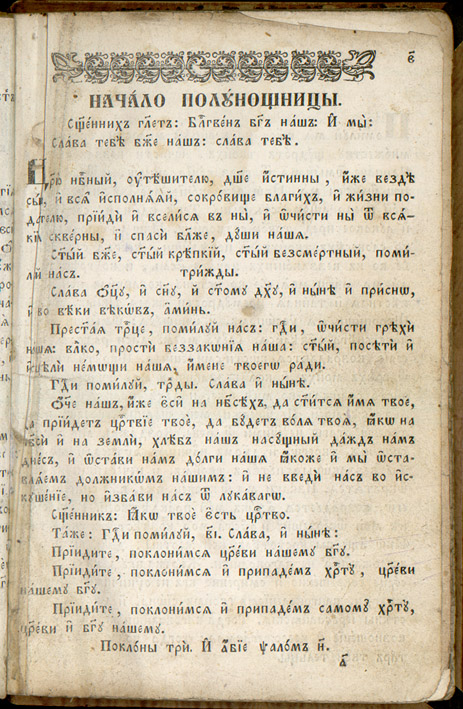 є҃
НАЧА́ЛО ПОЛꙊНО́ЩНИЦЫ.
Сщ҃е́нникъ гл҃етъ: Блгⷭ҇ве́нъ бг҃ъ на́шъ: И҆ мы̀:
Сла́ва тебѣ̀ бж҃е на́шъ: сла́ва тебѣ̀.
Цр҃ю̀ нбⷭ҇ный, оу҆тѣ́шителю, дш҃е и҆́стинны, и҆́же вездѣ̀
сы́й, и҆ всѧ̑ и҆сполнѧ́ѧй, сокро́вище благи́хъ, и҆ жи́зни по-
да́телю, прїидѝ и҆ всели́сѧ въ ны̀, и҆ ѡ҆чи́сти ны̀ ѿ всѧ́-
кїѧ скве́рны, и҆ спасѝ бл҃же, дꙋ́шы на́шѧ.
Ст҃ы́й бж҃е, ст҃ы́й крѣ́пкїй, ст҃ы́й безсме́ртный, поми́-
лꙋй на́съ. три́жды.
Сла́ва ѻ҆ц҃ꙋ̀, и҆ сн҃ꙋ, и҆ ст҃о́мꙋ дх҃ꙋ, и҆ ны́нѣ и҆ при́снѡ,
и҆ во вѣ́ки вѣкѡ́въ, а҆ми́нь.
Прест҃а́ѧ трⷪ҇це, поми́лꙋй на́съ: гдⷭ҇и, ѡ҆чи́сти грѣхѝ
на́шѧ: влⷣко, простѝ беззакѡ́нїѧ на́ша: ст҃ы́й, посѣтѝ и҆
и҆сцѣлѝ не́мощи на́шѧ, и҆́мене твоегѡ̀ ра́ди.
Гдⷭ҇и поми́лꙋй, три́жды. Сла́ва и҆ ны́нѣ.
Ѻ҆́че на́шъ, и҆́же є҆сѝ на нб҃сѣ́хъ, да ст҃и́тсѧ и҆́мѧ твоѐ,
да прїи́детъ црⷭ҇твїе твоѐ, да бꙋ́детъ во́лѧ твоѧ̀, ꙗ҆́кѡ на
нб҃сѝ и҆ на землѝ, хлѣ́бъ на́шъ насꙋ́щный да́ждь на́мъ
дне́сь, и҆ ѡ҆ста́ви на́мъ до́лги на́шѧ ꙗ҆́коже и҆ мы̀ ѡ҆ста-
влѧ́емъ должникѡ́мъ на́шимъ: и҆ не введѝ на́съ во и҆с-
кꙋше́нїе, но и҆зба́ви на́съ ѿ лꙋка́вагѡ.
Сщ҃е́нникъ: Ꙗ҆́кѡ твоѐ є҆́сть црⷭ҇тво.
Та́же: Гдⷭ҇и поми́лꙋй, в҃і. Сла́ва, и҆ ны́нѣ:
Прїиди́те, поклони́мсѧ цр҃е́ви на́шемꙋ бг҃ꙋ.
Прїиди́те, поклони́мсѧ и҆ припаде́мъ хрⷭ҇тꙋ̀, цр҃е́ви
на́шемꙋ бг҃ꙋ.
Прїиди́те, поклони́мсѧ и҆ припаде́мъ самомꙋ̀ хрⷭ҇тꙋ̀,
цр҃е́ви и҆ бг҃ꙋ на́шемꙋ.
Покло́ны трѝ. И҆ а҆́бїе ѱало́мъ н҃.